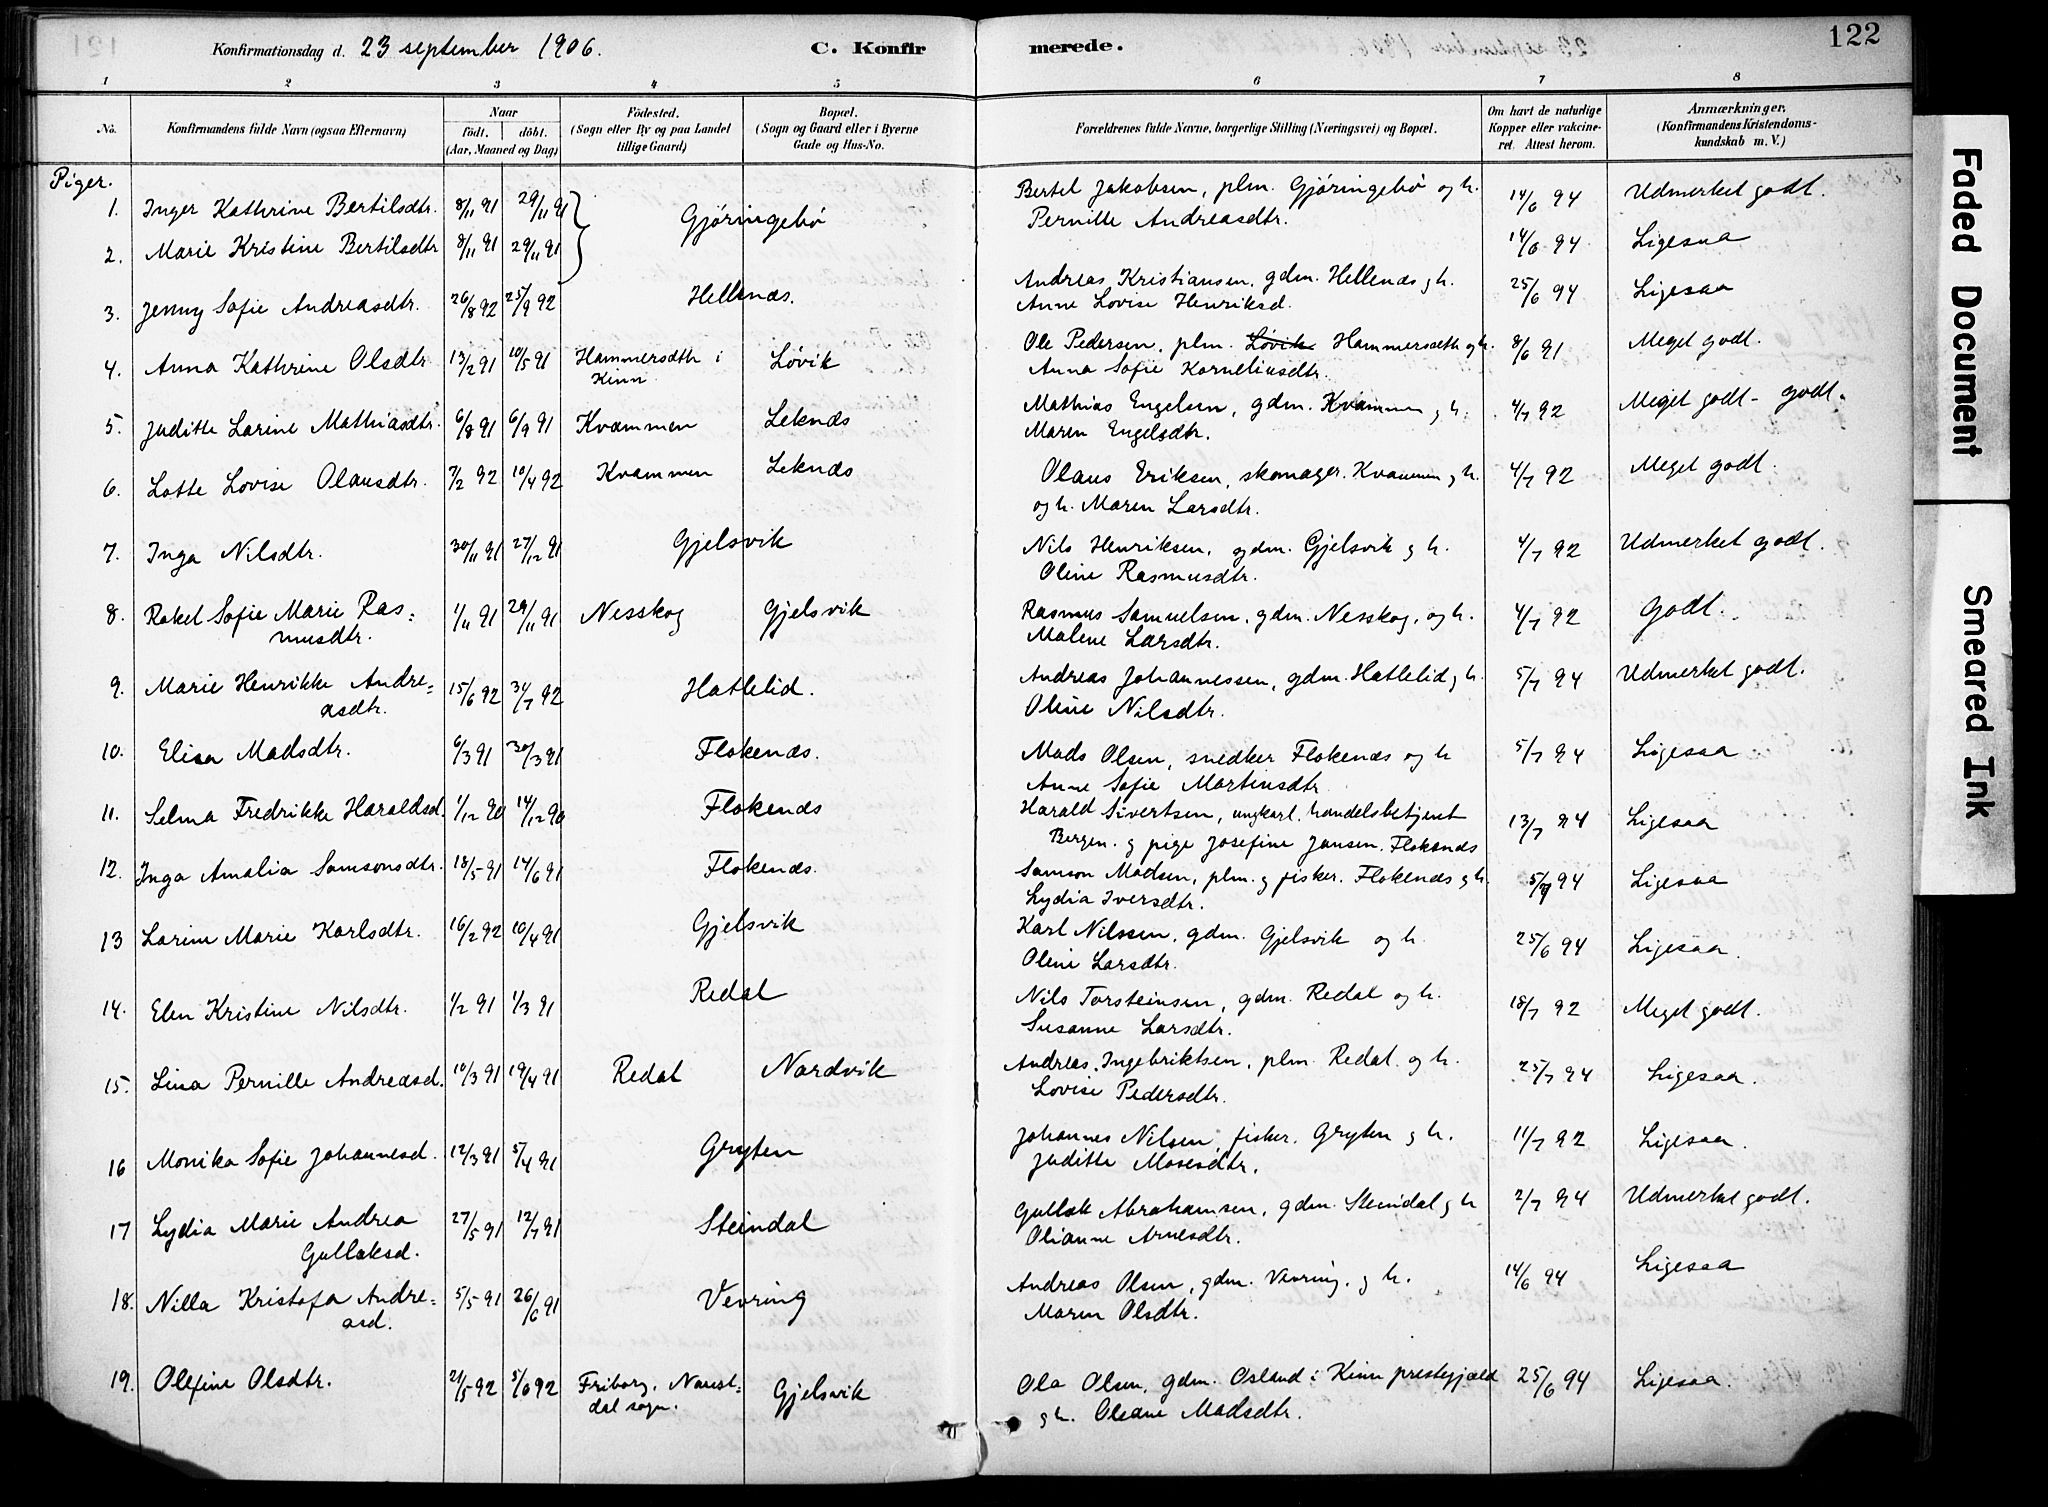 122
Konfirmationsdag d. 23 september 1906. C. Konfirmerede.
1 2 3 4 5 6 7 8
No. Konfirmandens fulde Navn (ogsaa Efternavn) Naar født. døbt. (Aar, Maaned og Dag) Fødested. (Sogn eller By og paa Landet tillige Gaard) Bopæl. (Sogn og Gaard eller i Byerne Gade og Hus-No. Forældrenes fulde Navne, borgerlige Stilling (Næringsvei) og Bopæl. Om havt de naturlige Kopper eller vakcineret. Attest herom. Anmærkninger. (Konfirmandens Kristendomskundskab m. V.)
Piger.
1. Inger Kathrine Bertilsdtr. 8/11 91 29/11 91 Gjøringebø Bertel Jakobsen, plm. Gjøringebø og h. Pernille Andreasdtr. 14/6 94 Udmerket godt.
2. Marie Kristine Bertilsdtr 8/11 91 29/11 91 14/6 94 Ligesaa
3. Jenny Sofie Andreasdtr. 26/8 92 25/9 92 Hellenæs. Andreas Kristiansen, gdm. Hellenæs g h. Anne Lovise Henriksd. 25/6 94 Ligesaa
4. Anna Kathrine Olsdtr. 13/2 91 10/5 91 Hammersæth i Kinn Løvik Ole Pedersen, plm. Løvik Hammersæth og h. Anna Sofie Korneliusdtr. 8/6 91 Meget godt.
5. Juditte Larine Mathiasdtr. 6/8 91 6/9 91 Kvammen Leknæs Mathias Engelsen, gdm. Kvammen g h. Maren Engelsdtr. 4/7 92 Meget godt - godt.
6. Lotte Lovise Olausdtr. 7/2 92 10/4 92 Kvammen Leknæs Olaus Eriksen, skomager. Kvammen g h. og h. Maren Larsdtr. 4/7 92 Meget godt.
7. Inga Nilsdtr. 30/11 91 27/12 91 Gjelsvik Nils Henriksen, gdm. Gjelsvik g h. Oline Rasmusdtr. 4/7 92 Udmerket godt.
8. Rakel Sofie Marie Rasmusdtr. 1/11 91 29/11 91 Nesskog Gjelsvik Rasmus Samuelsen, gdm. Nesskog, og h. Malene Larsdtr. 4/7 92 Godt.
9. Marie Henrikke Andreasdtr. 15/6 92 31/7 92 Hatlelid. Andreas Johannessen, gdm. Hatlelid g h. Oline Nilsdtr. 5/7 94 Udmerket godt.
10. Elisa Madsdtr. 6/3 91 30/3 91 Flokenæs. Mads Olsen, snedker Flokenæs og h Anne Sofie Martinusdtr 5/7 94 Ligesaa
11. Selma Fredrikke Haraldsd. 1/12 90 14/12 90 Flokenæs Harald Sivertsen, ungkarl, handelsbetjent Bergen. g pige Josefine Jansen. Flokenæs 13/7 94 Ligesaa
12. Inga Amalia Samsonsdtr. 18/5 91 14/6 91 Flokenæs. Samson Madsen, plm. g fisker. Flokenæs g h. Lydia Iversdtr. 5/7 94 Ligesaa
13 Larine Marie Karlsdtr. 16/2 92 10/4 91 Gjelsvik Karl Nilssen, gdm. Gjelsvik og h. Oline Larsdtr. 25/6 94 Ligesaa.
14. Elen Kristine Nilsdtr. 1/2 91 1/3 91 Redal Nils Torsteinsen, gdm. Redal og h. Susanne Larsdtr. 18/7 92 Meget godt.
15. Lina Pernille Andreasd. 10/3 91 19/4 91 Redal Nordvik Andreas Ingebriktsen, plm. Redal og h. Lovise Pedersdtr. 25/7 94 Ligesaa.
16 Monika Sofie Johannesd. 12/3 91 5/4 91 Gryten Johannes Nilsen, fisker. Gryten g h. Juditte Mosesdtr. 11/7 92 Ligesaa.
17 Lydia Marie Andrea Gullaksd. 27/5 91 12/7 91 Steindal Gullak Abrahamsen, gdm. Steindal g h Olianne Arnesdtr. 2/7 94 Udmerket godt.
18. Nilla Kristofa Andreasd. 5/5 91 26/6 91 Vevring Andreas Olsen, gdm. Vevring, g h. Maren Olsdtr. 14/6 94 Ligesaa
19. Olefine Olsdtr. 21/5 92 5/6 92 Friborg, Naustdal sogn. Gjelsvik Ola Olsen, gdm. Osland i Kinn prestegjæld g h. Oleane Madsdtr. 25/6 94 Ligesaa.
Faded Document
Smeared Ink